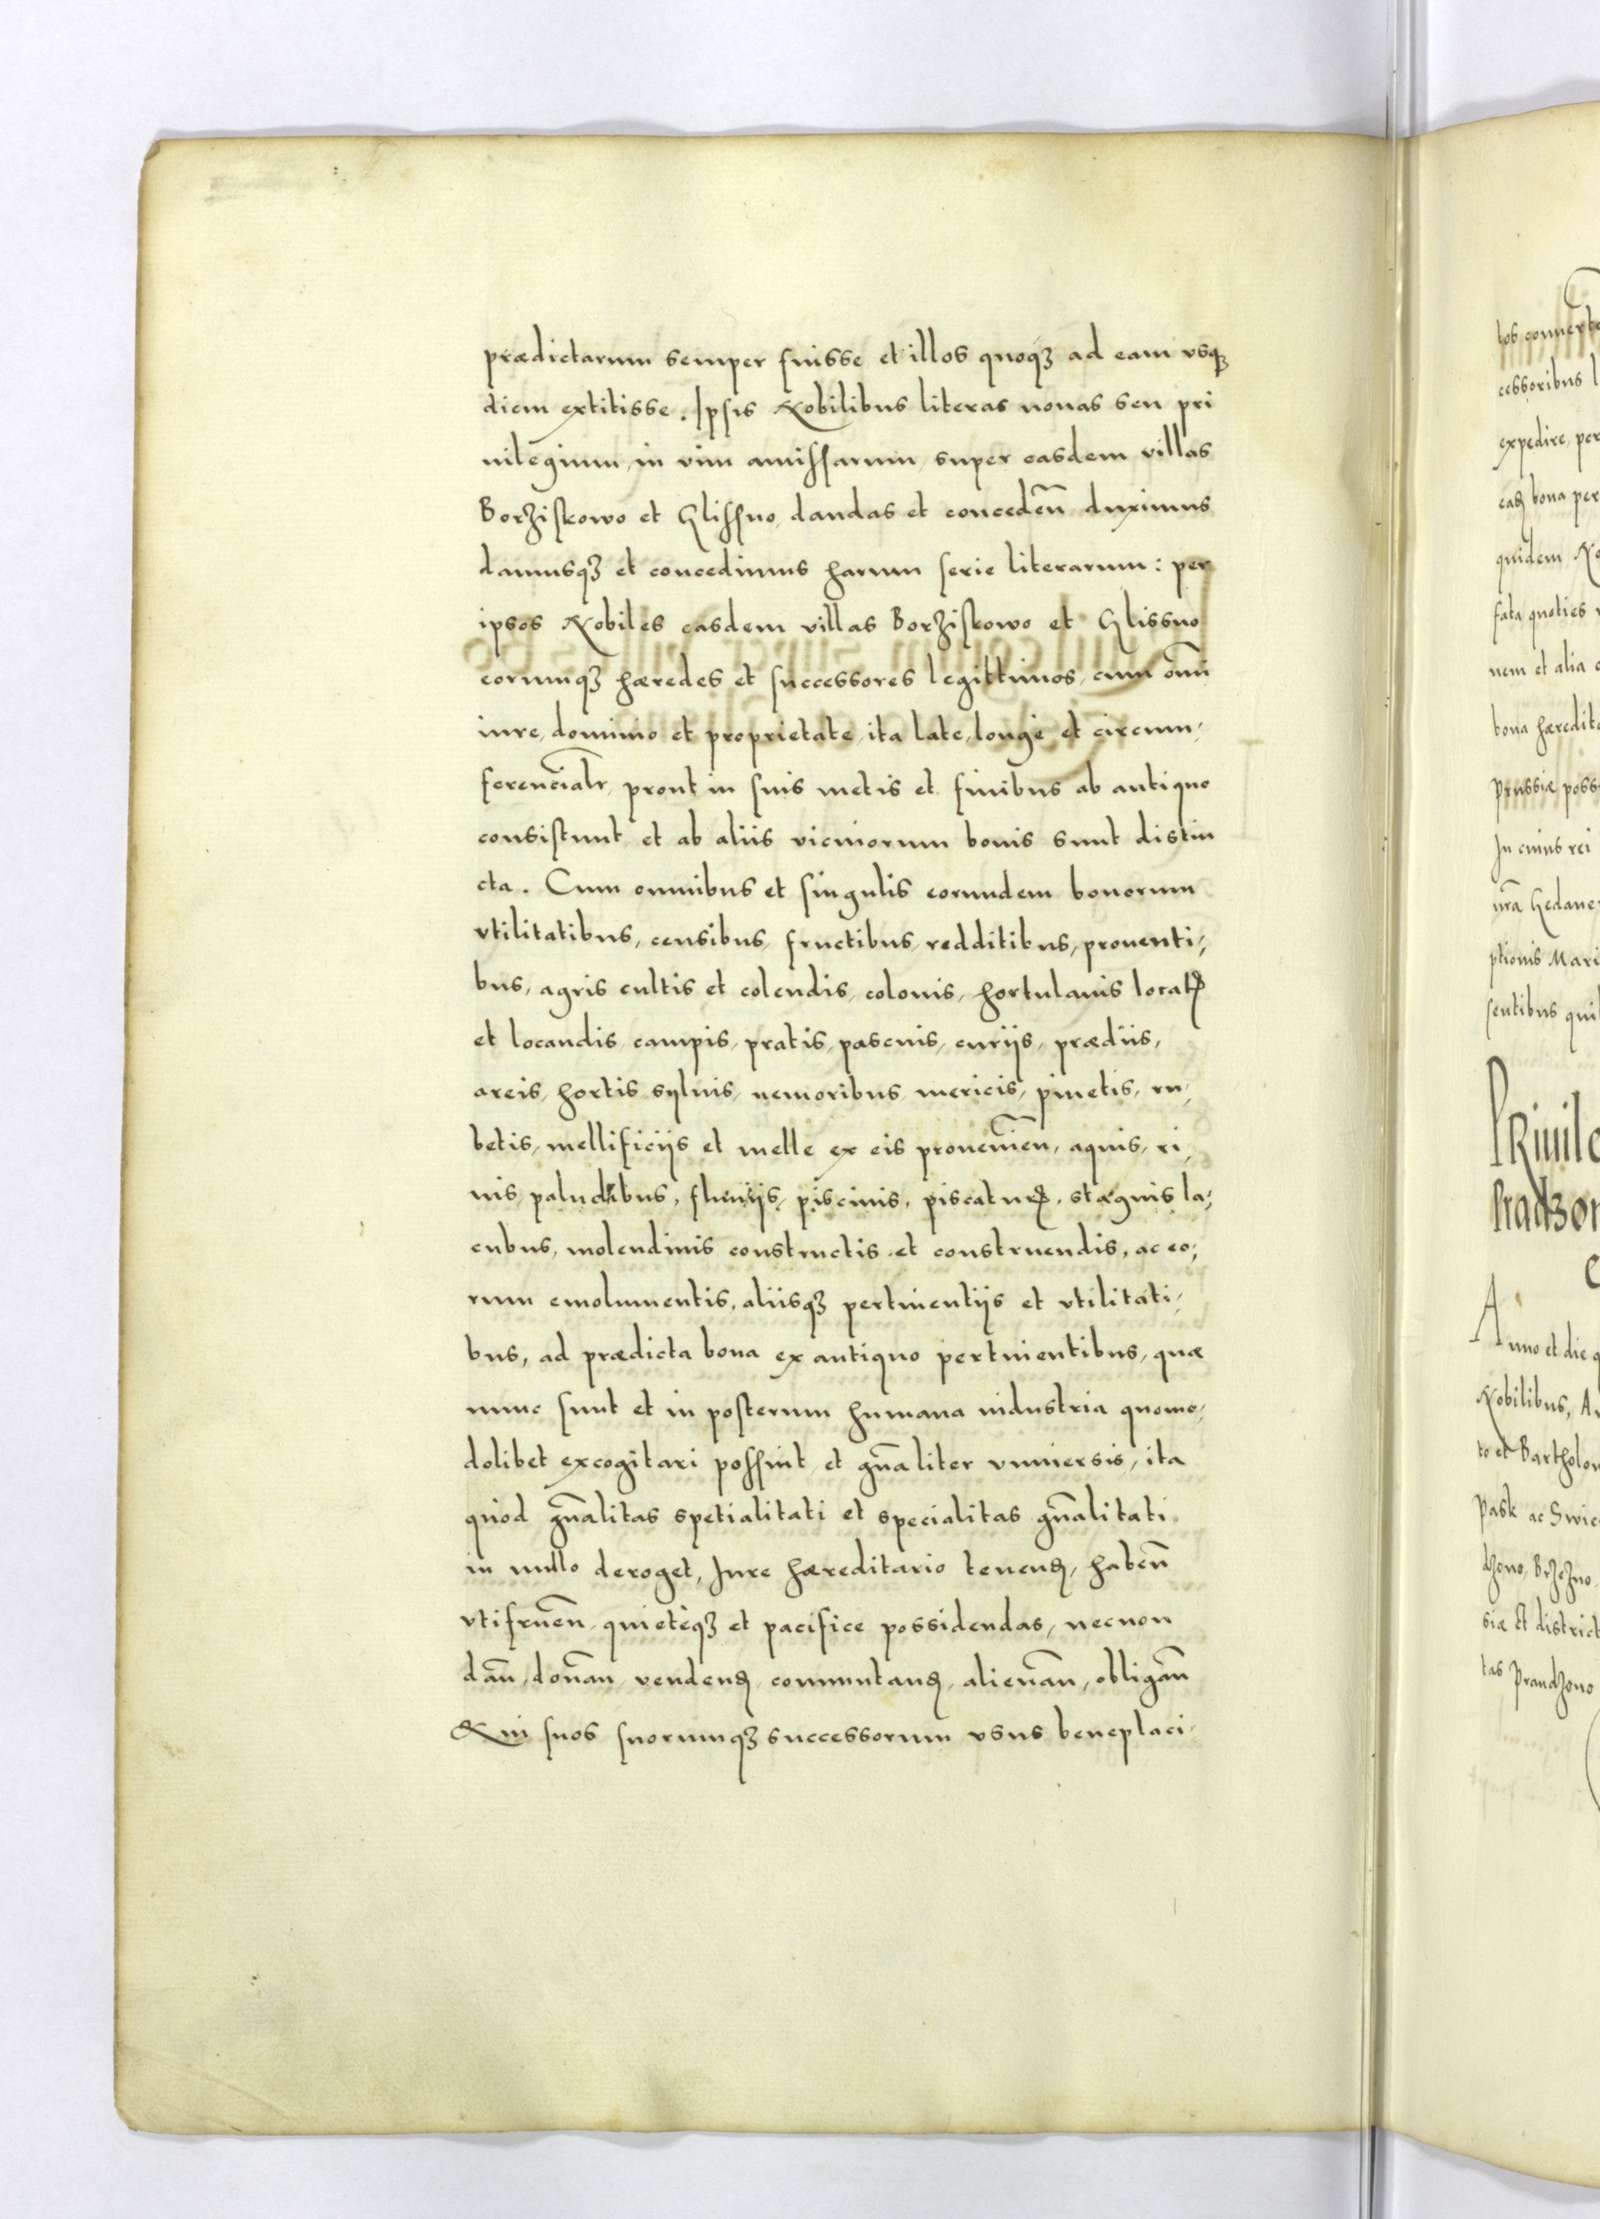 prædictarum semper fuisse et illos quoqꝫ ad eam vsqꝫ
diem extitisse. Ipsis Nobilibus literas nouas seu pri
uilegium, in vim amissarum, super easdem villas
Borziskowo et Glissno, dandas et conceden̄ duximus
damusqꝫ et concedimus harum serie literarum: per
ipsos Nobiles easdem villas Borziskowo et Glissno
eorumqꝫ hæredes et successores legittimos, cum om̄i
iure, dominio et proprietate, ita late, longe et circum,
ferencialr̄, prout in suis metis et finibus ab antiquo
consistunt et ab aliis vicinorum bonis sunt distin
cta. Cum omnibus et singulis eorundem bonorum
vtilitatibus, censibus, fructibus, redditibus, prouenti,
bus, agris cultis et colendis, colonis, hortulanis locatꝭ
et locandis campis, pratis, pascuis, curijs, prædiis,
areis, hortis syluis, nemoribus mericis, pinetis, ru,
betis, mellificijs et melle ex eis prouenien̄, aquis, ri,
uis, paludibus, fluuijs, piscinis, piscaturꝭ, stagnis la,
cubus, molendinis constructis et construendis, ac eo,
rum emolumentis, aliisqꝫ pertinentijs et vtilitati,
bus, ad prædicta bona ex antiquo pertinentibus, quæ
nunc sunt et in posterum humana industria quomo,
dolibet excogitari possint, et gn̄aliter vniuersis, ita
quòd gn̄alitas spetialitati et specialitas gn̄alitati
in nullo deroget, Iure hæreditario tenenꝭ, haben̄
vtifruen̄, quietèqꝫ et pacifice possidendas, necnon
dan̄, donan̄, vendenꝭ, commutanꝭ, alienan̄, obligan̄
& in suos suorumqꝫ successorum vsus beneplaci,
tos conuerte
cessoribus l
expedire, per
eaꝭ bona per
quidem No
fata quoties
nem et alia
bona hæredit
Prussiæ poss
In cuius rei
nr̄a Gedane
ptionis Mari
sentibus qui
Priuile
Pradzon
Anno et die q
Nobilibus, A
to et Bartholom
Pask ac Swie
dzono, Brzezno
siæ et district
tas Prandzono